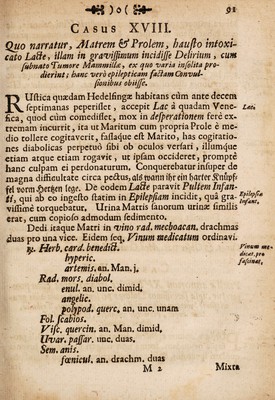 )o( 91
Casus XVIII.
Quo narratur, Matrem & Prolem, hausto intoxi-
cato Lacte, illam in gravissimum incidisse Delirium, cum
subnato Tumore Mammilla, ex quo varia insolita pro-
dierint; hanc verò epilepticam factam Convul-
sionibus obiisse.
RUstica quædam Hedelfingæ habitans cùm ante decem
septimanas peperisset, accepit Lac á quadam Venefi- Lac.
ca, quod cùm comedisset, mox in desperationem ferè ex-
tremam incurrit, ita ut Maritum cum propria Prole è me-
dio tollere cogitaverit, fassaque est Marito, has cogitatio-
nes diabolicas perpetuò sibi ob oculos versari, illumque
etiam atque etiam rogavit, ut ipsam occideret, promptè
hanc culpam ei perdonaturum. Conquerebatur insuper de
magna difficultate circa pectus, als wann ihr ein harter Knüpf-
fel vorm Hertzen lege. De eodem Lacte paravit Pultem Infan-
ti, qui ab eo ingesto statim in Epilepsiam incidit, quâ gra- Epilepsia
vissimè torquebatur. Urina Matris sanorum urinæ similis infant.
erat, cum copioso admodum sedimento.
Dedi itaque Matri in vino rad. mechoacan. drachmas
duas pro una vice. Eidem seq. Vinum medicatum ordinavi. Vinum me-
℞. Herb. card. benedict. dicat. pro
hyperic. fascinat.
artemis. an. Man. j.
Rad. mors. diabol.
enul. an. unc. dimid.
angelic.
polypod. querc. an. unc. unam
Fol. scabios.
Visc. quercin. an. Man. dimid.
Uvar. passar. unc. duas.
Sem. anis.
fœnicul. an. drachm. duas
M 2 Mixta